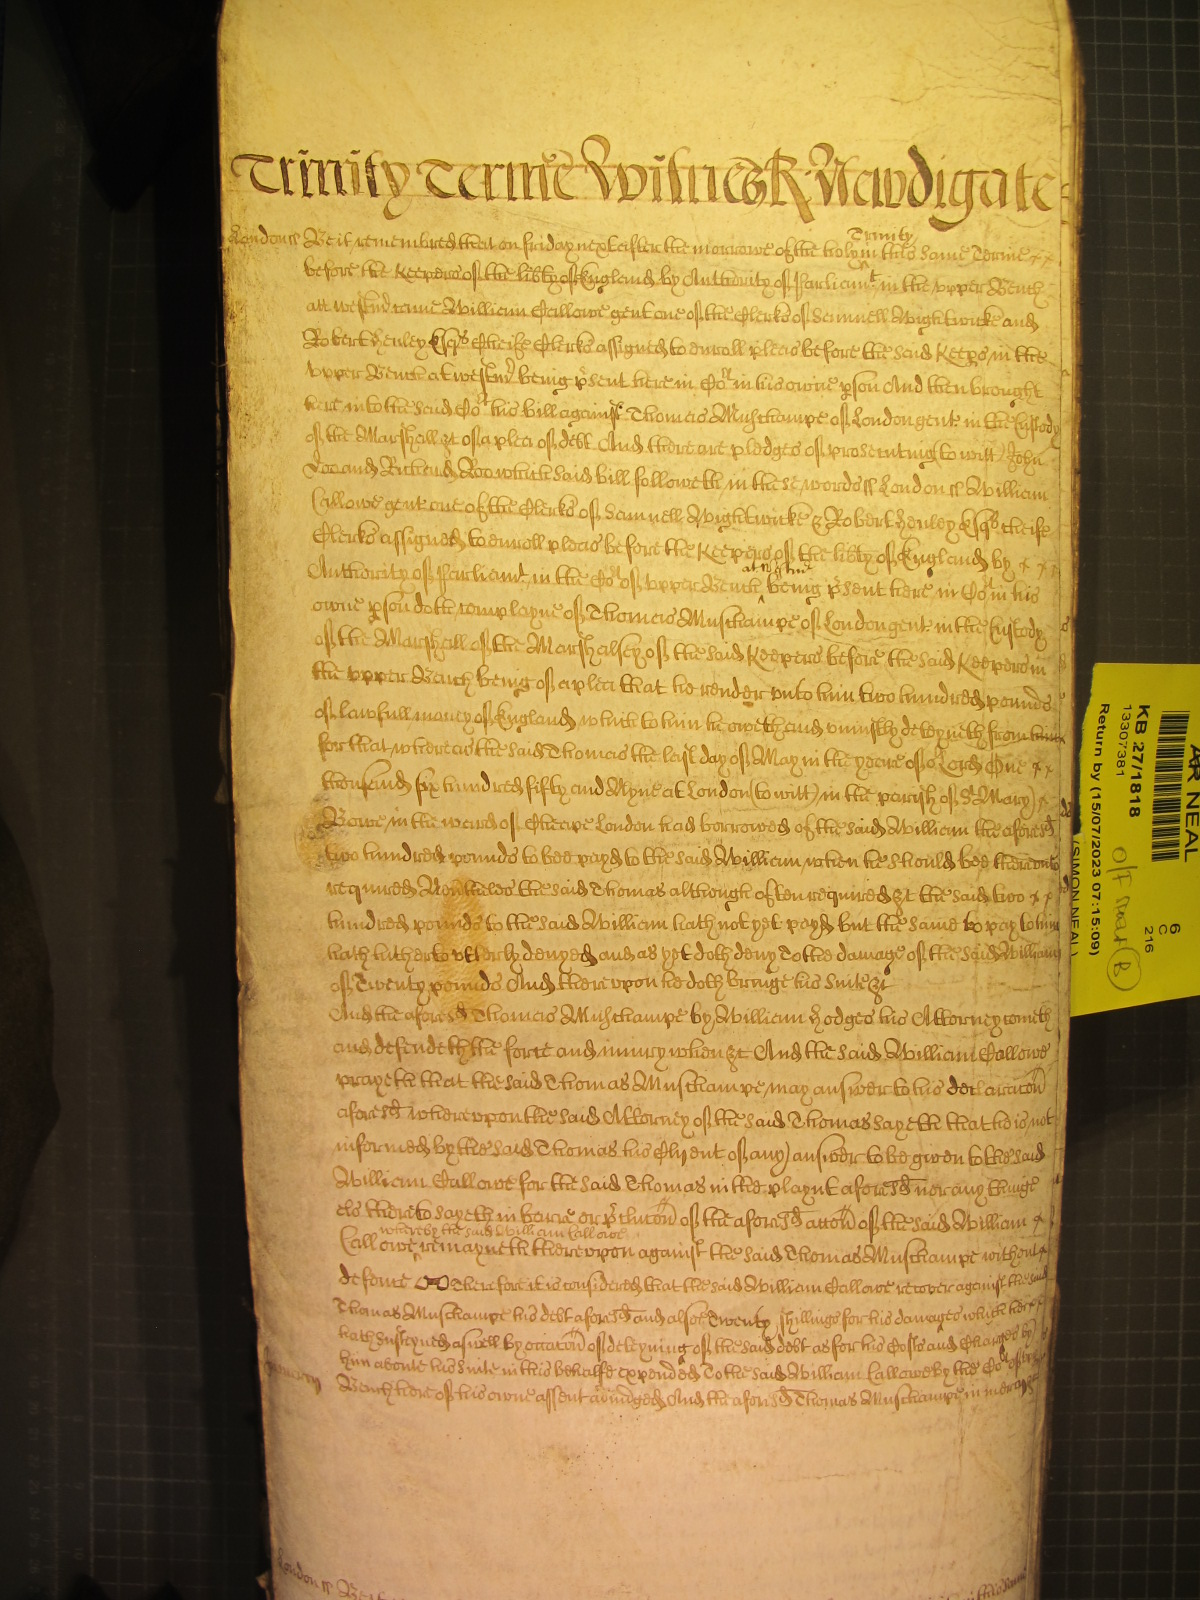 Trinity Terme Witnes R Newdigate
London ss Be it remembred that on friday next after the morrowe of the holy Trinity in this same Terme
before the Keepers of the libty of England by Authority of Parliamt in the upper Bench
att Westm came William Callowe gent one of the Clerks of Samuell Wightwicke and
Robert Henley Esqs Cheife Clerks assigned to enroll pleas before the said Keeps in the
upper Bench at Westmr being psent here in Cort in his owne pson And then brought
here into the said Cort his bill against Thomas Muschampe of London gent in the Custody
of the Marshall &c of a plea of debt And there are pledges of prosecuting (to witt) John
Doe and Richard Roe which said bill followeth in these words ss London ss William
Callowe gent one of the Clerks of Samuell Wightwicke & Robert Henley Esqs cheife
Clerks assigned to enroll pleas before the Keepers of the libty of England by
Authority of Parliamt in the Cort of upper Bench at Westmr being psent here in Cort in his
owne pson doth complayne of Thomas Muschampe of London gent in the Custody
of the Marshall of the Marshalsey of the said Keepers before the said Keepers in
the upper Bench being of a plea that he render unto him two hundred pounds
of lawfull money of England which to him he oweth and uniustly deteyneth from him
for that whereas the said Thomas the last day of May in the yeare of or Lord One
thousand six hundred fifty and Nyne at London (to witt) in the parish of St Mary
Bowe in the ward of Cheape London had borrowed of the said William the aforesd
two hundred pounds to bee payd to the said William when he should bee thereunto
required Neverthelesse the said Thomas although often required &c the said two
hundred pounds to the said William hath not yet payd but the same to pay to him
hath hitherto utterly denyed and as yet doth deny To the damage of the said William
of Twenty pounds And thereupon he doth bringe his suite &c
And the aforesd Thomas Muschampe by William Hodges his Attorney cometh
and defendeth the force and iniury when &c And the said William Callowe
prayeth that the said Thomas Muschampe may answer to his declaracon
aforesd whereupon the said Attorney of the said Thomas sayeth that he is not
informed by the said Thomas his Clyent of any answer to be given to the said
William Callowe for the said Thomas in the playnt aforesd nor any thinge
els thereto sayeth in barre or pclucon of the aforesd accon of the said William
Callowe whereby the said William Callowe remayneth thereupon against the said Thomas Muschampe without
defence Therefore it is considered that the said William Callowe recover against the said
Thomas Muschampe his debt aforesd and alsoe Twenty shillings for his damages which hee
hath susteyned aswell by occacon of deteyning of the said debt as for his Costs and Charges by
him aboute his suite in this behalfe expended To the said William Callowe by the Cort of
Bench here of his owne assent adiudged And the aforesd Thomas Muschampe in mercy &c
London ss Be it
AR NEAL
KB 27/1818
13307381
Return by (15/07/2023 07:15:09)
(SIMON NEAL)
6
C
216